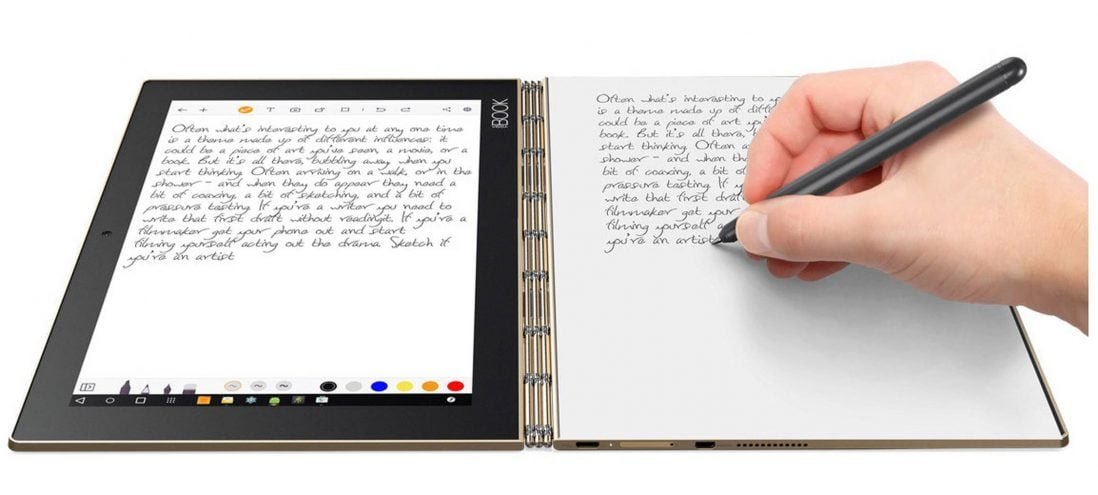 BOOK
Often what's interesting to you at any one time
is a theme made up of different influences: it
could be a piece of art you've seen, a movie, or a
book. But it's all there, bubbling away when you
start thinking. Often arriving on a walk, or in the
shower - and when they do appear they need a
bit of coaxing, a bit of sketching, and a bit of
pressure testing. If you're a writer you need to
write that first draft without readingit. If you're a
filmmaker get your phone out and start
filming yourself acting out the drama. Sketch if
you're an artist
Often what's interesting to y
is a theme made up of diff
could be a piece of art you
book. But it's all there,
start thinking. Often a
shower - and when th
bit of coaxing, a bit of
pressure testing. If y
write that first draf
filmmaker get your
filming yourself a
you're an artist